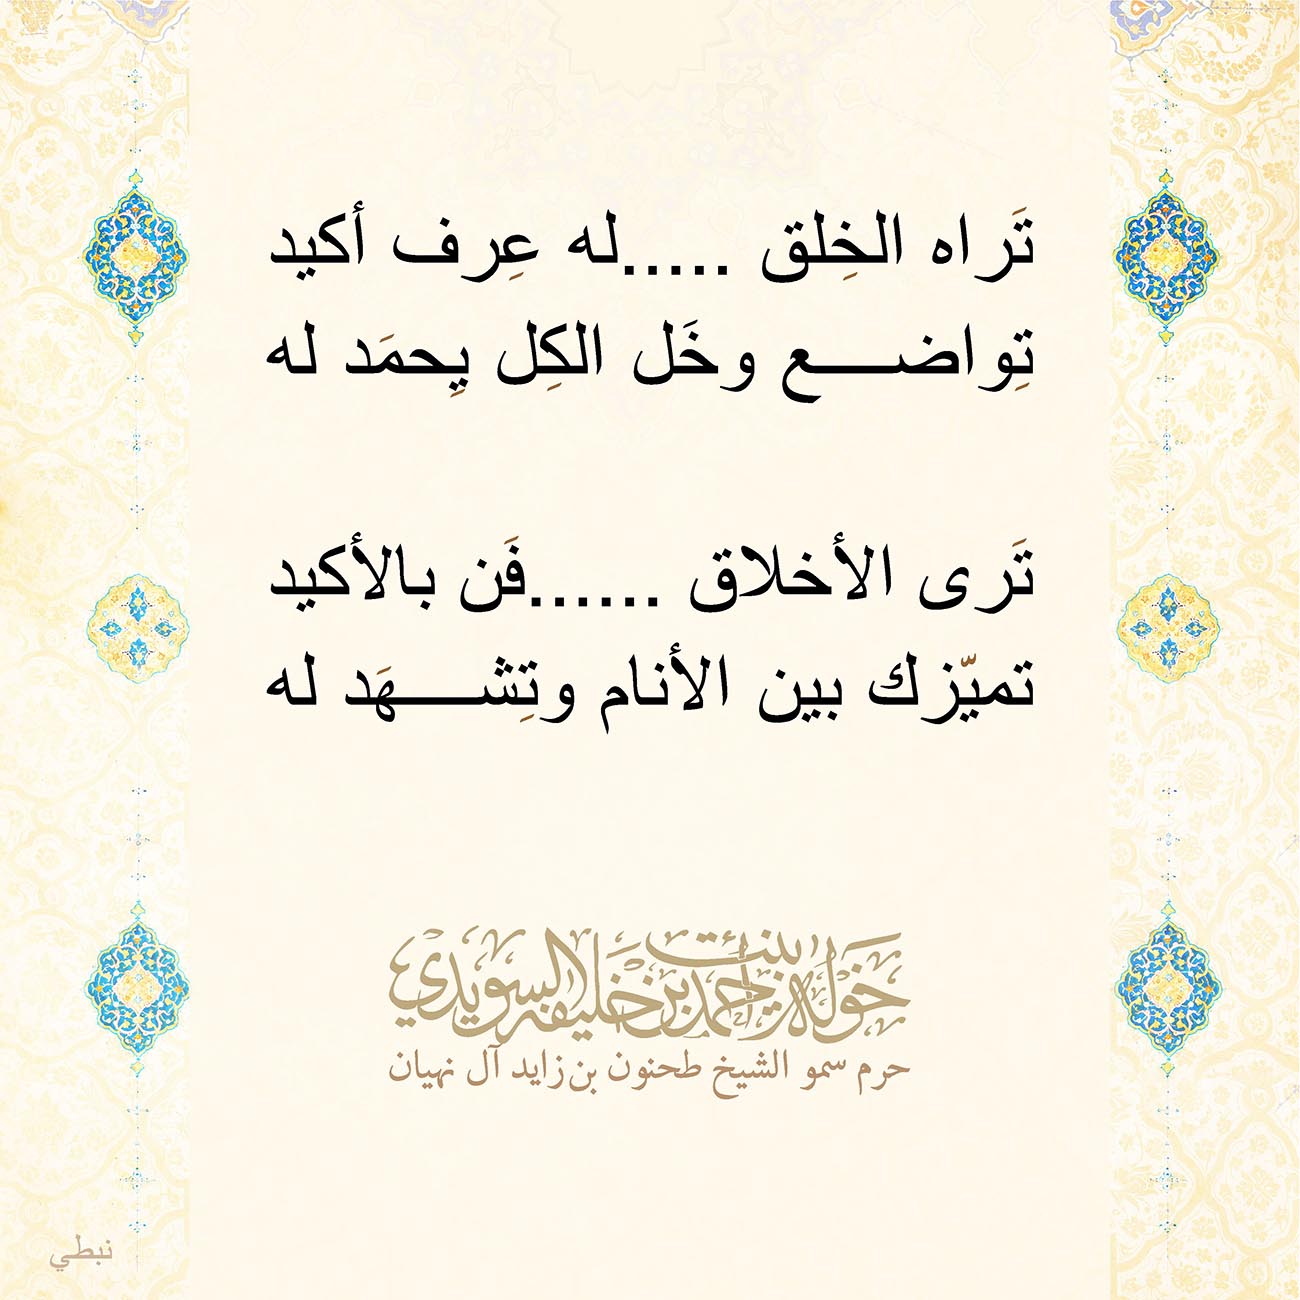 تَراه الخِلق .....له عِرف أكيد
تِواضـــــع وخَل الكِل يِحمَد له
تَرى الأخلاق ......فَن بالأكيد
تميّزك بين الأنام وتِشـــــهَد له
خوله بنت أحمد بن خليفه السويدي
حرم سمو الشيخ طحنون بن زايد آل نهيان
نبطي